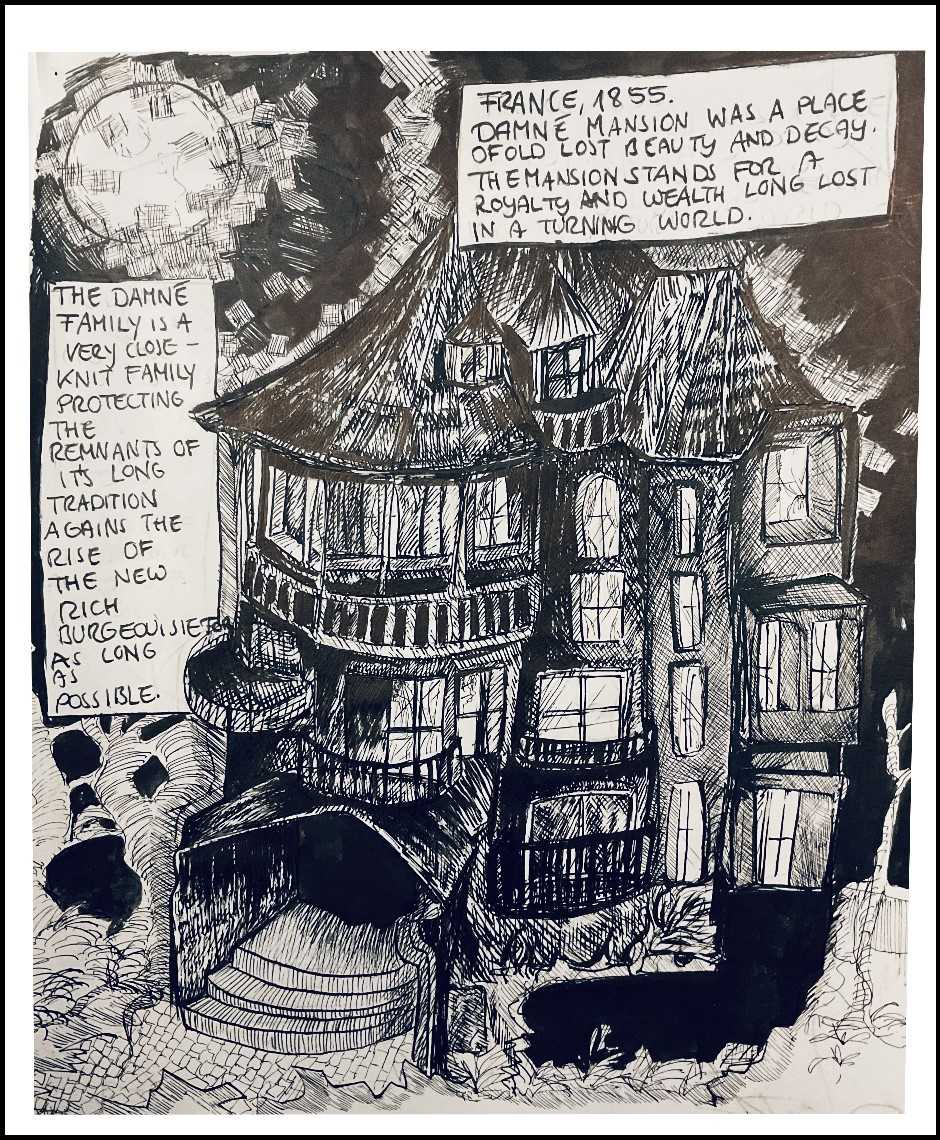 FRANCE, 1855.
DAMNÉ MANSION WAS A PLACE
OF OLD LOST BEAUTY AND DECAY.
THE MANSION STANDS FOR A
ROYALTY AND WEALTH LONG LOST
IN A TURNING WORLD.
THE DAMNÉ
FAMILY IS A
VERY CLOSE-
KNIT FAMILY
PROTECTING
THE
REMNANTS OF
IT'S LONG
TRADITION
AGAINS THE
RISE OF
THE NEW
RICH
BURGEOUISIE
AS LONG
AS
POSSIBLE.